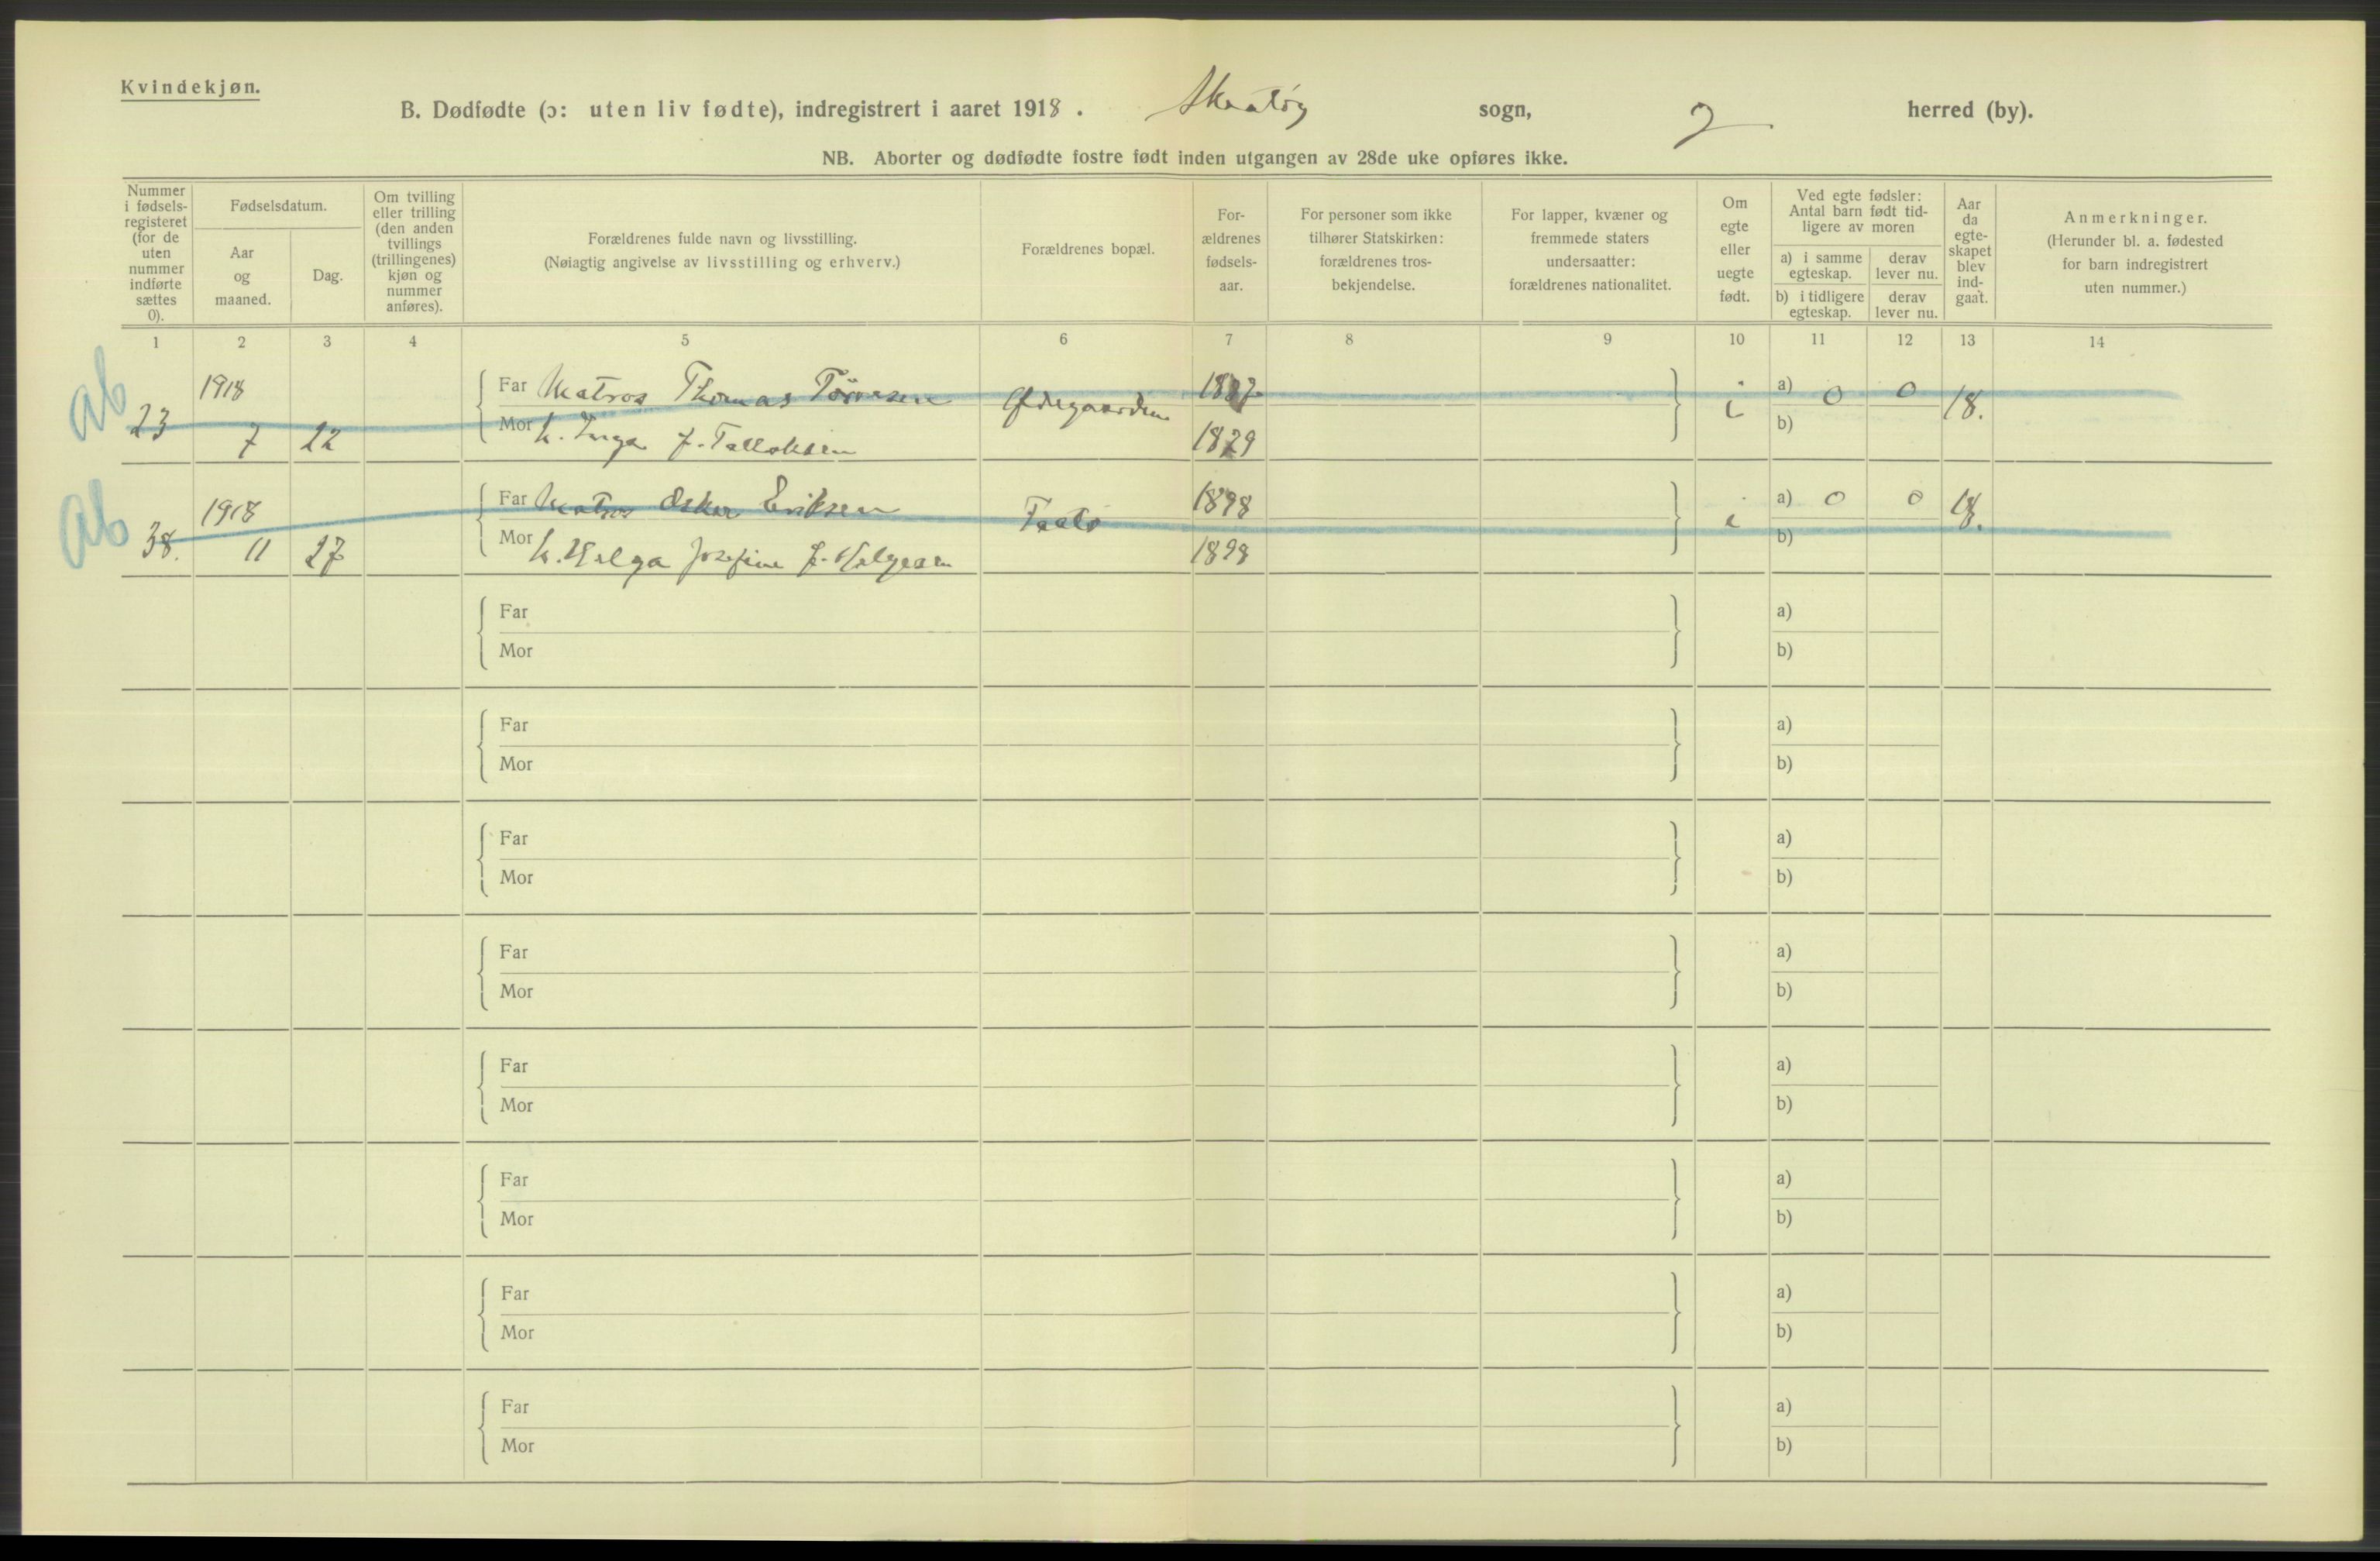 Kvindekjøn.
B. Dødfødte (ɔ: uten liv fødte), indregistrert i aaret 1918. Skaatøy sogn, herred (by).
NB. Aborter og dødfødte fostre født inden utgangen av 28de uke opføres ikke.
Nummer i fødsels-registeret (for de uten nummer indførte sættes 0).
Fødselsdatum.
Aar og maaned.
Dag.
Om tvilling eller trilling (den anden tvillings (trillingenes) kjøn og nummer anføres).
Forældrenes fulde navn og livsstilling.
(Nøiagtig angivelse av livsstilling og erhverv.)
Forældrenes bopæl.
For-ældrenes fødsels-aar.
For personer som ikke tilhører Statskirken: forældrenes tros-bekjendelse.
For lapper, kvæner og fremmede staters undersaatter: forældrenes nationalitet.
Om egte eller uegte født.
Ved egte fødsler: Antal barn født tid-ligere av moren
a) i samme egteskap.
derav lever nu.
b) i tidligere egteskap.
derav lever nu.
Aar da egte-skapet blev ind-gaat.
Anmerkninger.
(Herunder bl. a. fødested for barn indregistrert uten nummer.)
1 2 3 4 5 6 7 8 9 10 11 12 13 14
ab 23 1918 7 22
Far Matros Thomas Tørresen Ødegaarden a) 0 0 18.
Mor h. Inga f. Tallaksen b)
ab 38. 1918 11 27
Far Matros Oskar Eriksen Taatø 1898 a) 0 0 18.
Mor h. Helga Josefine f. Helgesen 1898 b)
Far a)
Mor b)
Far a)
Mor b)
Far a)
Mor b)
Far a)
Mor b)
Far a)
Mor b)
Far a)
Mor b)
Far a)
Mor b)
Far a)
Mor b)